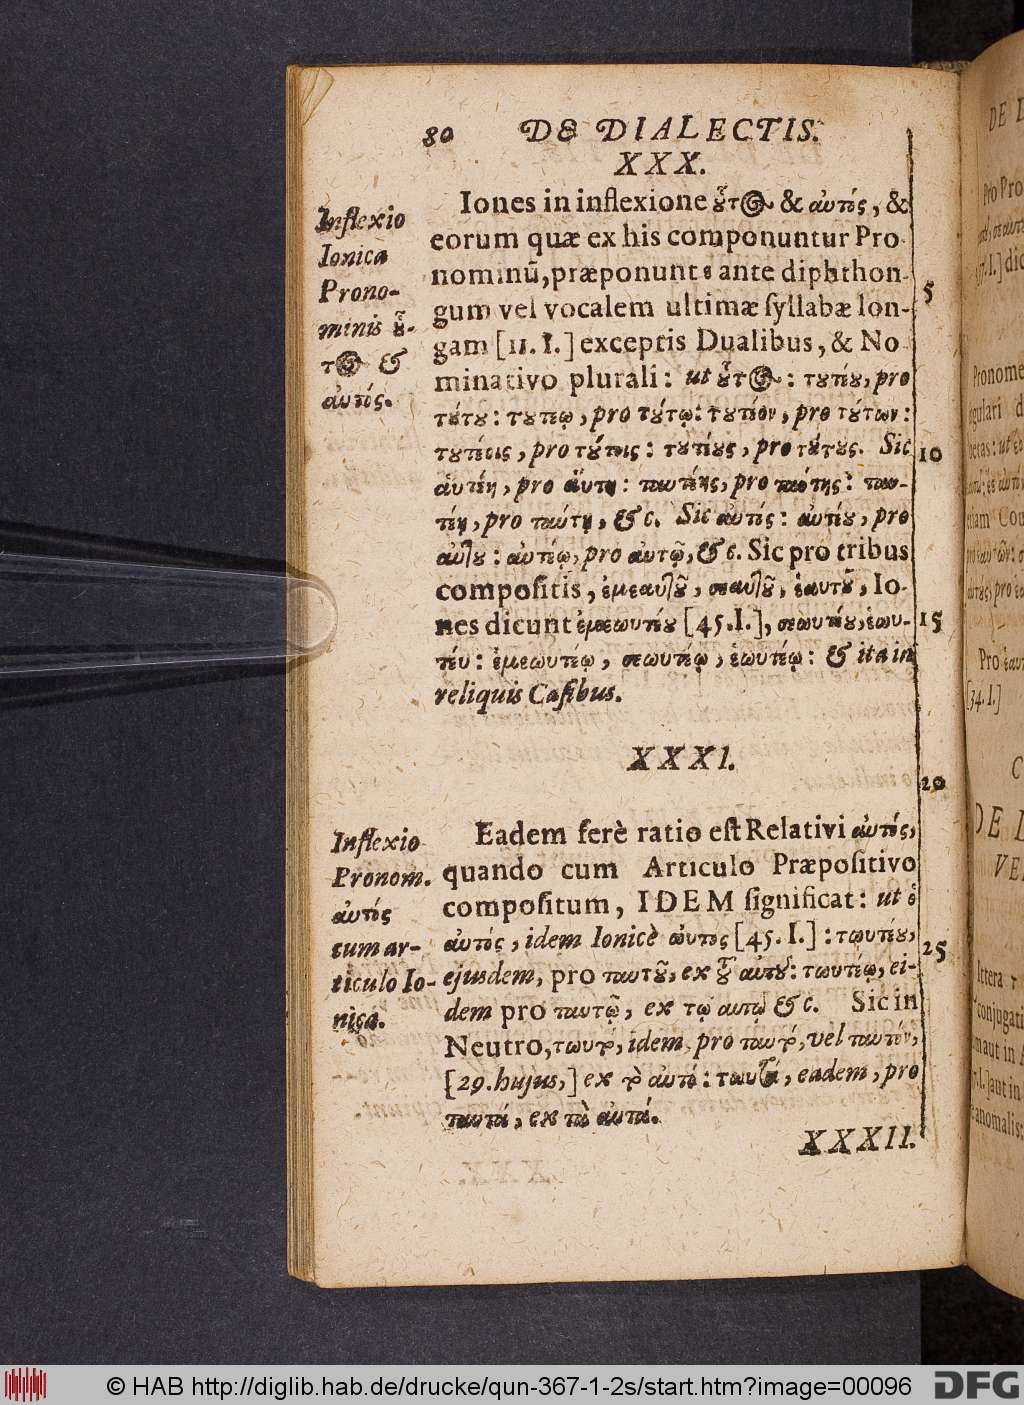 80 DE DIALECTIS.
XXX.
Inflexio
Ionica
Prono-
minis ȣ̔͂-
τος &
αὐτός.
Iones in inflexione ȣ̔͂τος & αὐτός, &
eorum quæ ex his componuntur Pro
nominū, præponunt ε ante diphthon-
gum vel vocalem ultimæ ſyllabæ lon-
gam [11. I.] exceptis Dualibus, & No
minativo plurali: ut ȣ̔͂τος: τȣτέȣ, pro
τȣ́τȣ: τȣτέῳ, pro τȣ́τῳ: τȣτέον, pro τȣ́των:
τȣτέοις, pro τȣ́τοις: τȣτέȣς, pro τȣ́τȣς. Sic
αὑτέη, pro αὕτη: ταυτέης, pro ταύτης: ταυ-
τέῃ, pro ταύτῃ, &c. Sic αὐτός: αὐτέȣ, pro
αὐτȣ: αὐτέῳ, pro αὐτῷ, &c. Sic pro tribus
compoſitis, ἐμεαυτȣ͂, σεαυτȣ͂, ἑαυτȣ͂, Io-
nes dicunt ἐμεωυτέȣ [45. I.], σεωυτέȣ, ἑωυ-
τέυ: ἐμεωυτέῳ, σεωυτέῳ, ἑωυτέῳ: & ita in
reliquis Caſibus.
5
10
15
XXXI.
20
Inflexio
Pronom.
αὐτός
cum ar-
ticulo Io-
nica.
Eadem ferè ratio eſt Relativi αὐτός,
quando cum Articulo Præpoſitivo
compoſitum, IDEM ſignificat: ut ὁ
αὐτός, idem Ionicè ωὐτος [45. I.]: τωυτέȣ,
ejusdem, pro ταυτȣ͂, ex τȣ͂ αὐτȣ͂: τωυτέῳ, ei-
dem pro ταυτῷ, ex τῳ αυτῳ &c. Sic in
Neutro, τωυτό, idem pro ταυτό, vel ταυτόν,
[29. hujus,] ex τὸ αὐτό: τωυτά, eadem, pro
ταυτά, ex τὰ αὐτά.
25
XXXII.
© HAB http://diglib.hab.de/drucke/qun-367-1-2s/start.htm?image=00096
DFG